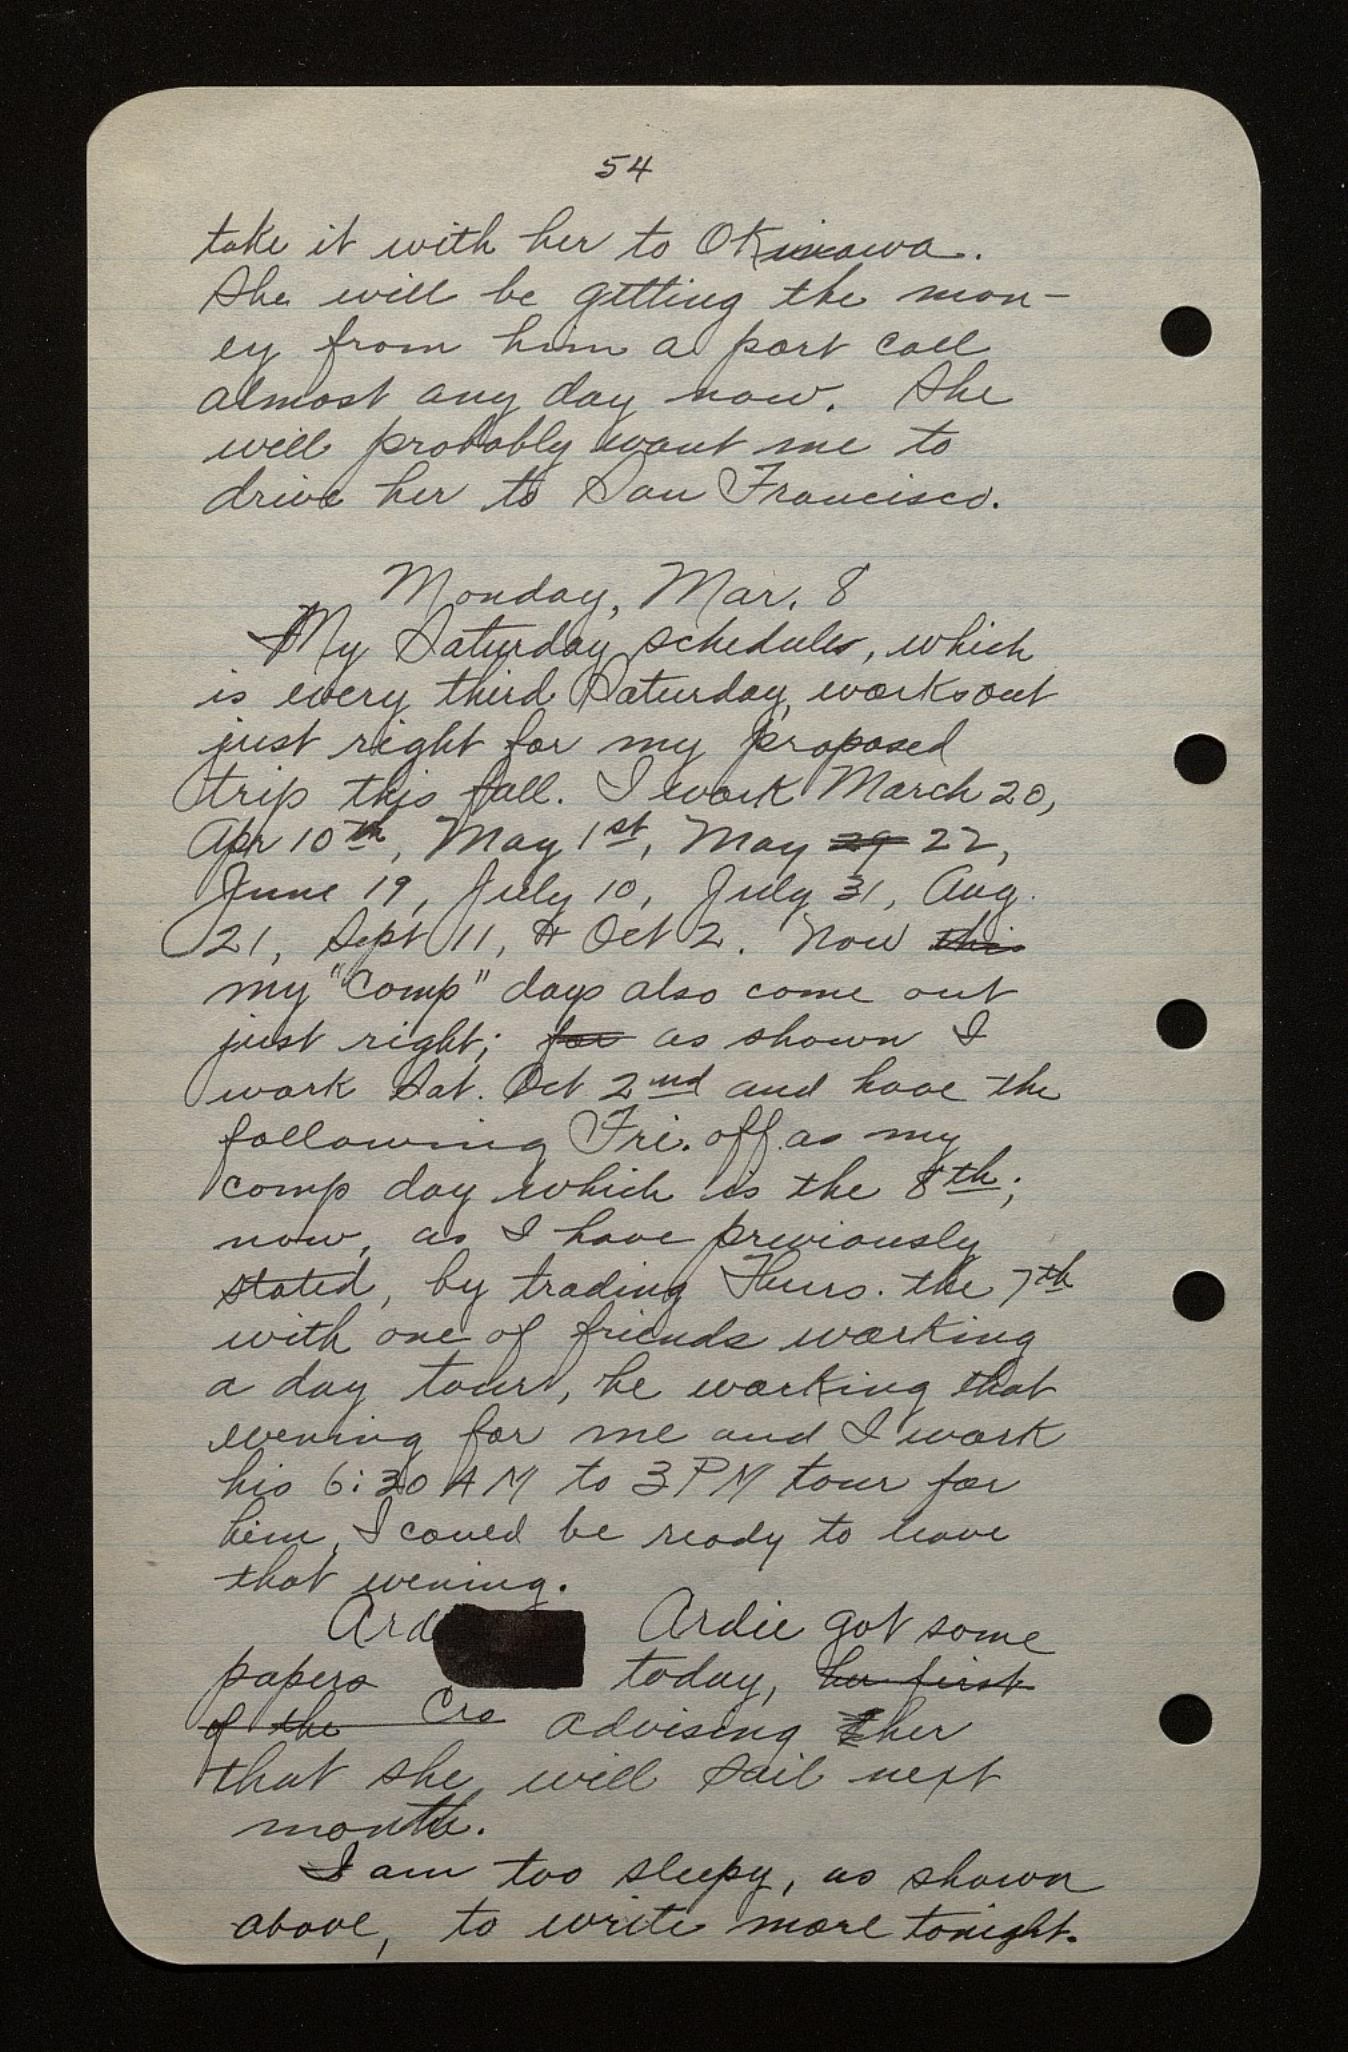 54
take it with her to Okinawa.
She will be getting the mon-
ey from him a port call
almost any day now. She
will probably want me to
drive her to San Francisco.
Monday, Mar. 8
My Saturday schedules, which
is every third Saturday, works out
just right for my proposed
trip this fall. I work March 20,
Apr 10th, May 1st, May 29 22,
June 19, July 10, July 31, Aug.
21, Sept 11, & Oct 2. Now this
my "Comp" days also come out
just right; for as shown I
work Sat. Oct 2nd and have the
following Fri. off as my
comp day which is the 8th;
now, as I have previously
stated, by trading Thurs. the 7th
with one of friends working
a day tour, he working that
evening for me and I work
his 6:30 AM to 3 PM tour for
him, I could be ready to leave
that evening.
Ard Ardie got some
papers today, her first
of the Cro advising her
that she will sail next
month.
I am too sleepy, as shown
above, to write more tonight.